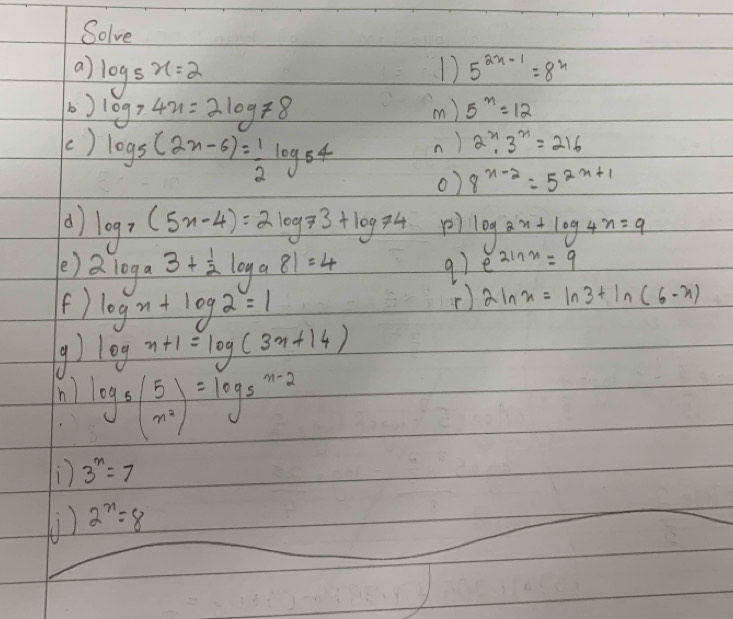 Solve
a) log₅ x = 2
b) log₇ 4x = 2 log₇ 8
c) log₅ (2x - 6) = 1/2 log₅ 4
d) log₇ (5x - 4) = 2 log₇ 3 + log₇ 4
e) 2 logₐ 3 + 1/2 logₐ 81 = 4
f) log x + log 2 = 1
g) log x + 1 = log (3x + 14)
h) log₅ (5/x²) = log₅ x-2
i) 3ˣ = 7
j) 2ˣ = 8
l) 5²ˣ⁻¹ = 8ˣ
m) 5ˣ = 12
n) 2ˣ . 3ˣ = 216
o) 8ˣ⁻² = 5²ˣ⁺¹
p) log 2x + log 4x = 9
q) e^(2 ln x) = 9
r) 2 ln x = ln 3 + ln (6 - x)